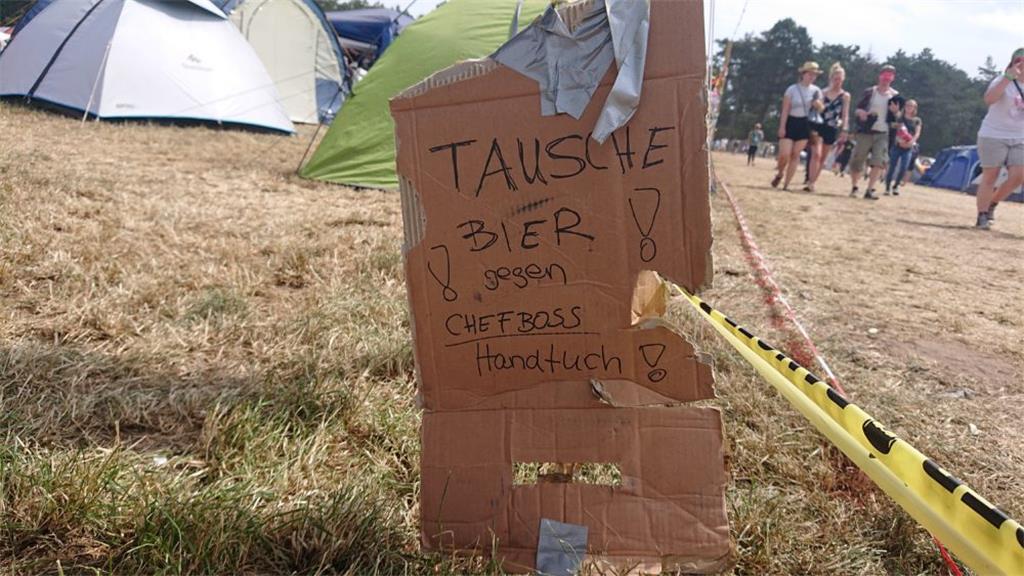 TAUSCHE
BIER !
! gegen
CHEFBOSS
Handtuch !